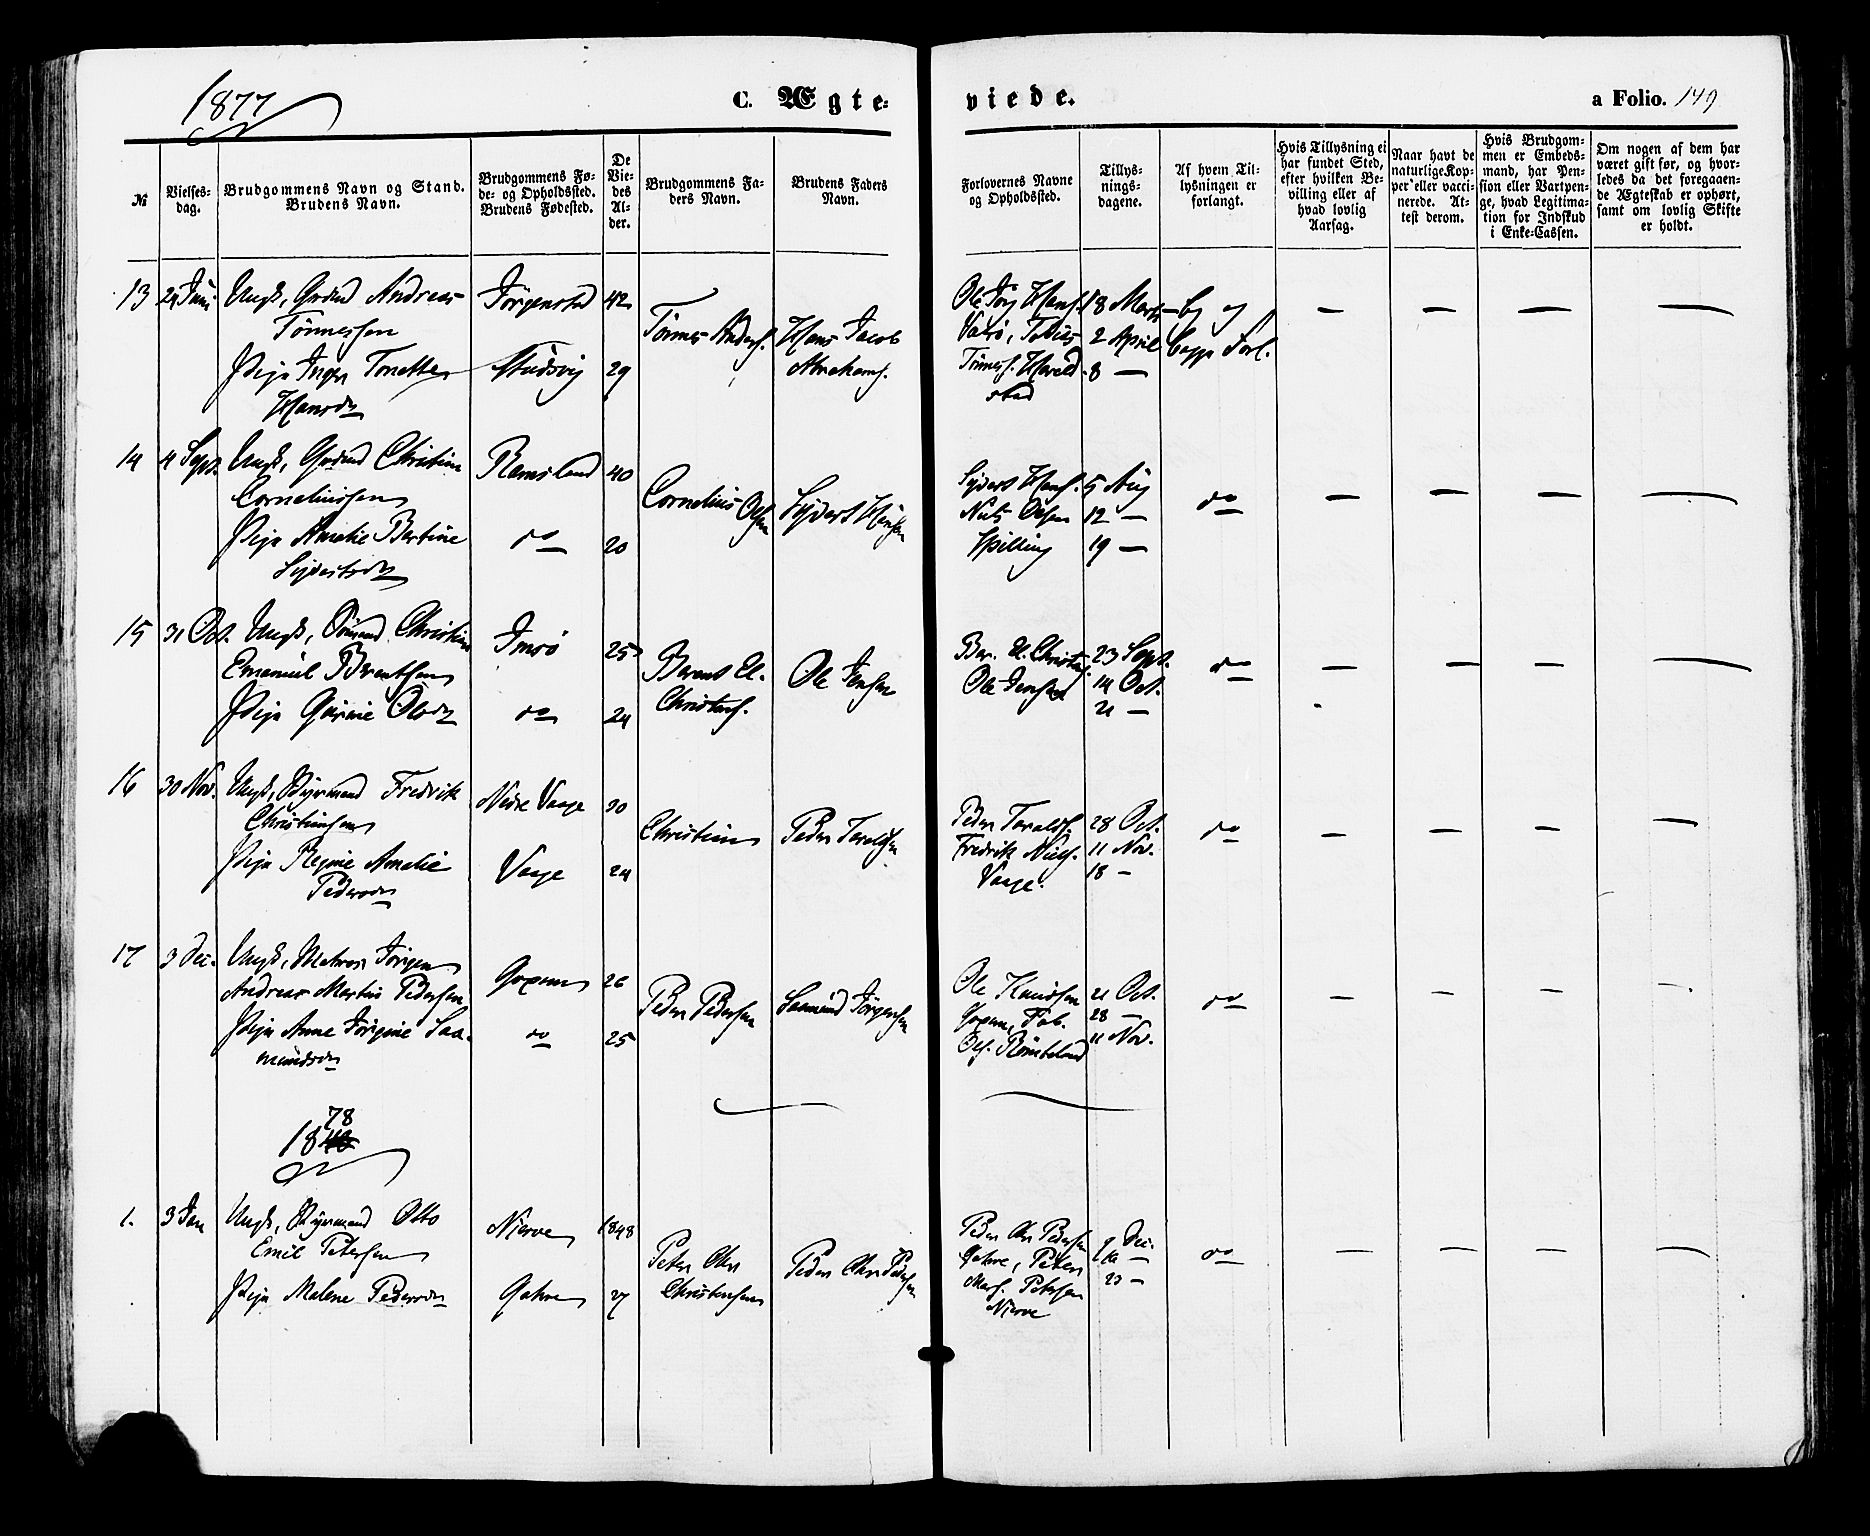 1877
C. Ægte-
viede.
a Folio. 149
№
Vielses-
dag.
Brudgommens Navn og Stand.
Brudens Navn.
Brudgommens Fø-
de- og Opholdssted.
Brudens Fødested.
De
Vie-
des
Al-
der.
Brudgommens Fa-
ders Navn.
Brudens Faders
Navn.
Forlovernes Navne
og Opholdssted.
Tillys-
nings-
dagene.
Af hvem Til-
lysningen er
forlangt.
Hvis Tillysning ei
har fundet Sted,
efter hvilken Be-
villing eller af
hvad lovlig
Aarsag.
Naar havt de
naturlige Kop-
per eller vacci-
nerede. At-
test derom.
Hvis Brudgom-
men er Embeds-
mand, har Pen-
sion eller Vartpen-
ge, hvad Legitima-
tion for Indskud
i Enke-Cassen.
Om nogen af dem har
været gift før, og hvor-
ledes da det foregaaen-
de Ægteskab er ophørt,
samt om lovlig Skifte
er holdt.
13 Juni Ungk, Andreas
Tønnessen
Pige Inger Tonette
Hansdr
42
29
Tønnes Anders.
Hans Jacob
Abrahams.
18 Marts
2 April
8 —
— — — —
14 4 Sept. Ungk, Christian
Corneliussen
Pige Amalie Bertine
Sijvertsdr
Ramsland
do
40
20
Cornelius Olsen
Sijvert Hansen
Sijvert Hans.
Nils Olsen
Spilling
5 Aug
12 —
19 —
do
— — — —
15 31 Oct. Ungk, Christian
Emanuel Berentsen
Pige Olsdr
Imsø
do
25
24
Berent El.
Christens.
Ole Jensen
Ber. El. Christens.
Ole Jensen
23 Sept.
14 Oct.
21 —
do
— — — —
16 30 Nov. Ungk, Styrmand Fredrik
Christiansen
Pige Regine Amalie
Pedersdr
Nedre Vaage
Vaage
30
24
Christian
Peder Taraldsen
Peder Taralds.
Fredrik Niels.
Vaage.
28 Oct.
11 Nov.
18 —
do
— — — —
17 3 Dec. Ungk, Matros Jörgen
Andreas Martin Pedersen
Pige Anne Jörgine Saa-
mundsdr
do
26
25
Peder Pedersen
Saamund Jörgensen
Ole Knudsen
Tob.
Ols.
21 Oct.
28 —
11 Nov.
do
— — — —
1878
1. 3 Jan Ungk, Styrmand Otto
Emil Petersen
Pige Malene Pedersdr
Njerve
Gahre
1848
27
Peter Chr
Christensen
Peder Chr Pedersen
Peder Chr Pedersen
Gahre, Peter
Petersen
Njerve
9 Dec.
16 —
23 —
do
— — — —